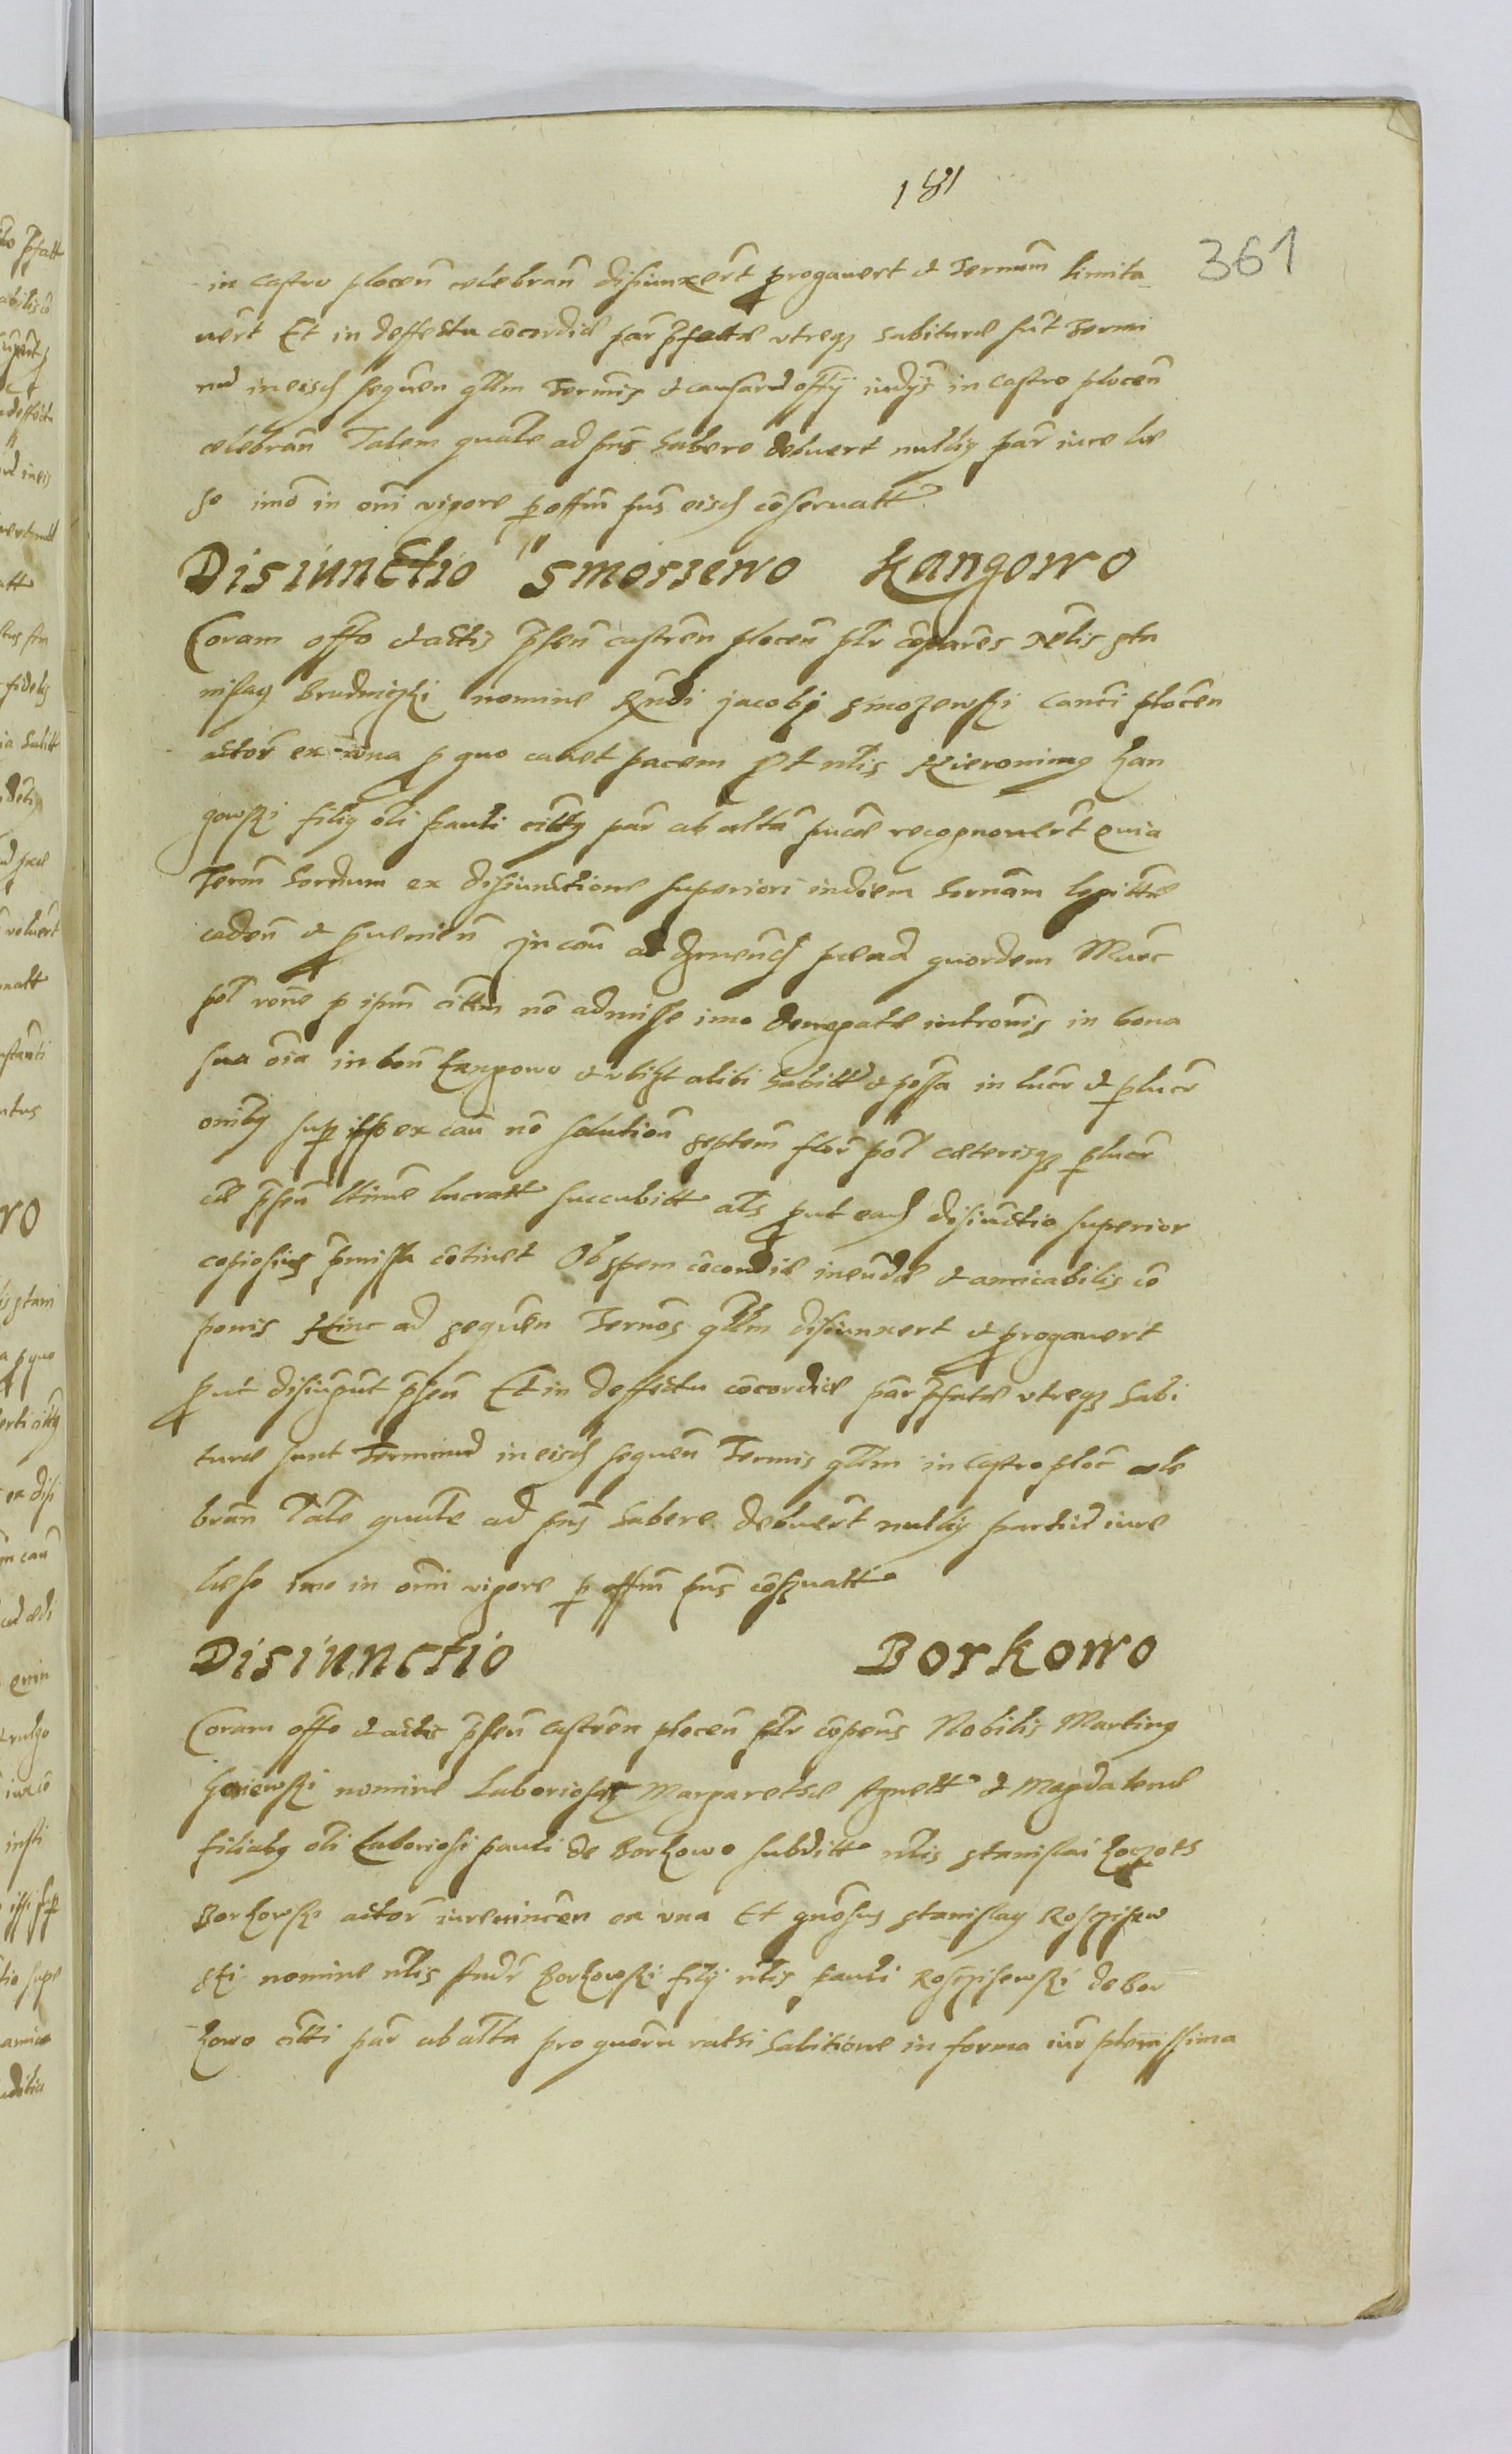 181
361
in Castro plocen̄ celebran̄ disiunxert̄ progauert & Termum̄ limita
uert̄ Et in deffectu cōcordiæ par̄ p̄fattæ vtreqȝ habituræ sūt Termi
nū in eisd̄ sequen̄ gllm̄ Termis & causarū offij iudijs in castro plocen̄
celebran̄ Talem quale ad pn̄s habere debuert nulliȝ par̄ iure læ
so imō in om̄i vigore p offm̄ pn̄s eisd̄ cōseruatt
Disiunctio Smoszewo Kangowo
Coram offo & actis p̄sen̄ castren̄ plocen̄ plr̄ cōparēs Nblis Sta
nislaȝ Brudniczki nomine Rn̄di Jacobj Smozewski Canci plocen
actor̄ ex vna p quo cauet pacem Et nblis Hieronimȝ Kan
gowski filiȝ oli Pauli cittȝ par̄ ab altā in pncæ recognouert̄ quia
Term̄ hodnum ex disiunctione superiori in diem hernam legittæ
caden̄ & prouenien̄ In cau̅ ad quordem Marc
pol̄ rōne p ipm̄ cittm̄ nō admisse imo denegatæ intromīs in bona
sua oīa in bon̄ Kangowo & vbiqȝ alibi habitt & possa in lucr̄ & plucr̄
omīȝ sup ipso ex cau̅ nō solution̄ septem flor̄ pol̄ cæterisqȝ plucr̄
cæ p̄sen̄ lttime lucratt succubitt als put ead̄ disiūctio superior
copiosius p̄missa cōtinet Ob spem cōcordiæ ineundæ & amicabilis cō
ponis Hinc ad sequen̄ Termos gllm̄ disiunxert & progauert
put disiūgūt p̄sen̄ Et in deffectu cōcordiæ par̄ p̄fatæ vtreqȝ habi
turæ sunt Terminū in eisd̄ sequen̄ Termis gllm̄ in Castro ploc̄ cele
bran̄ Tale quale ad pn̄s habere debuert̄ nulliȝ partiū iure
læso imo in om̄i vigore p offm̄ pn̄s cōseruatt
Disiunctio Borkowo
Coram offo & actis p̄sen̄ Castren̄ plocen̄ plr̄ cōpens̄ Nobilis Martinȝ
nomine Laboriosarȝ Margarethæ Agnett & Magdalenæ
filiabȝ oli Laboriosi Pauli de Borkowo subditt nblis Stanislai
Borkowski actor̄ iureuincen̄ ex vna Et gnosus Stanislaȝ Rosczisew
ski nomine nblis Andr̄ Borkowski filij nblis Pauli Rosczisewski de Bor
kowo citti par̄ ab alta pro quorū ratihabitione in forma iur̄ plenissima